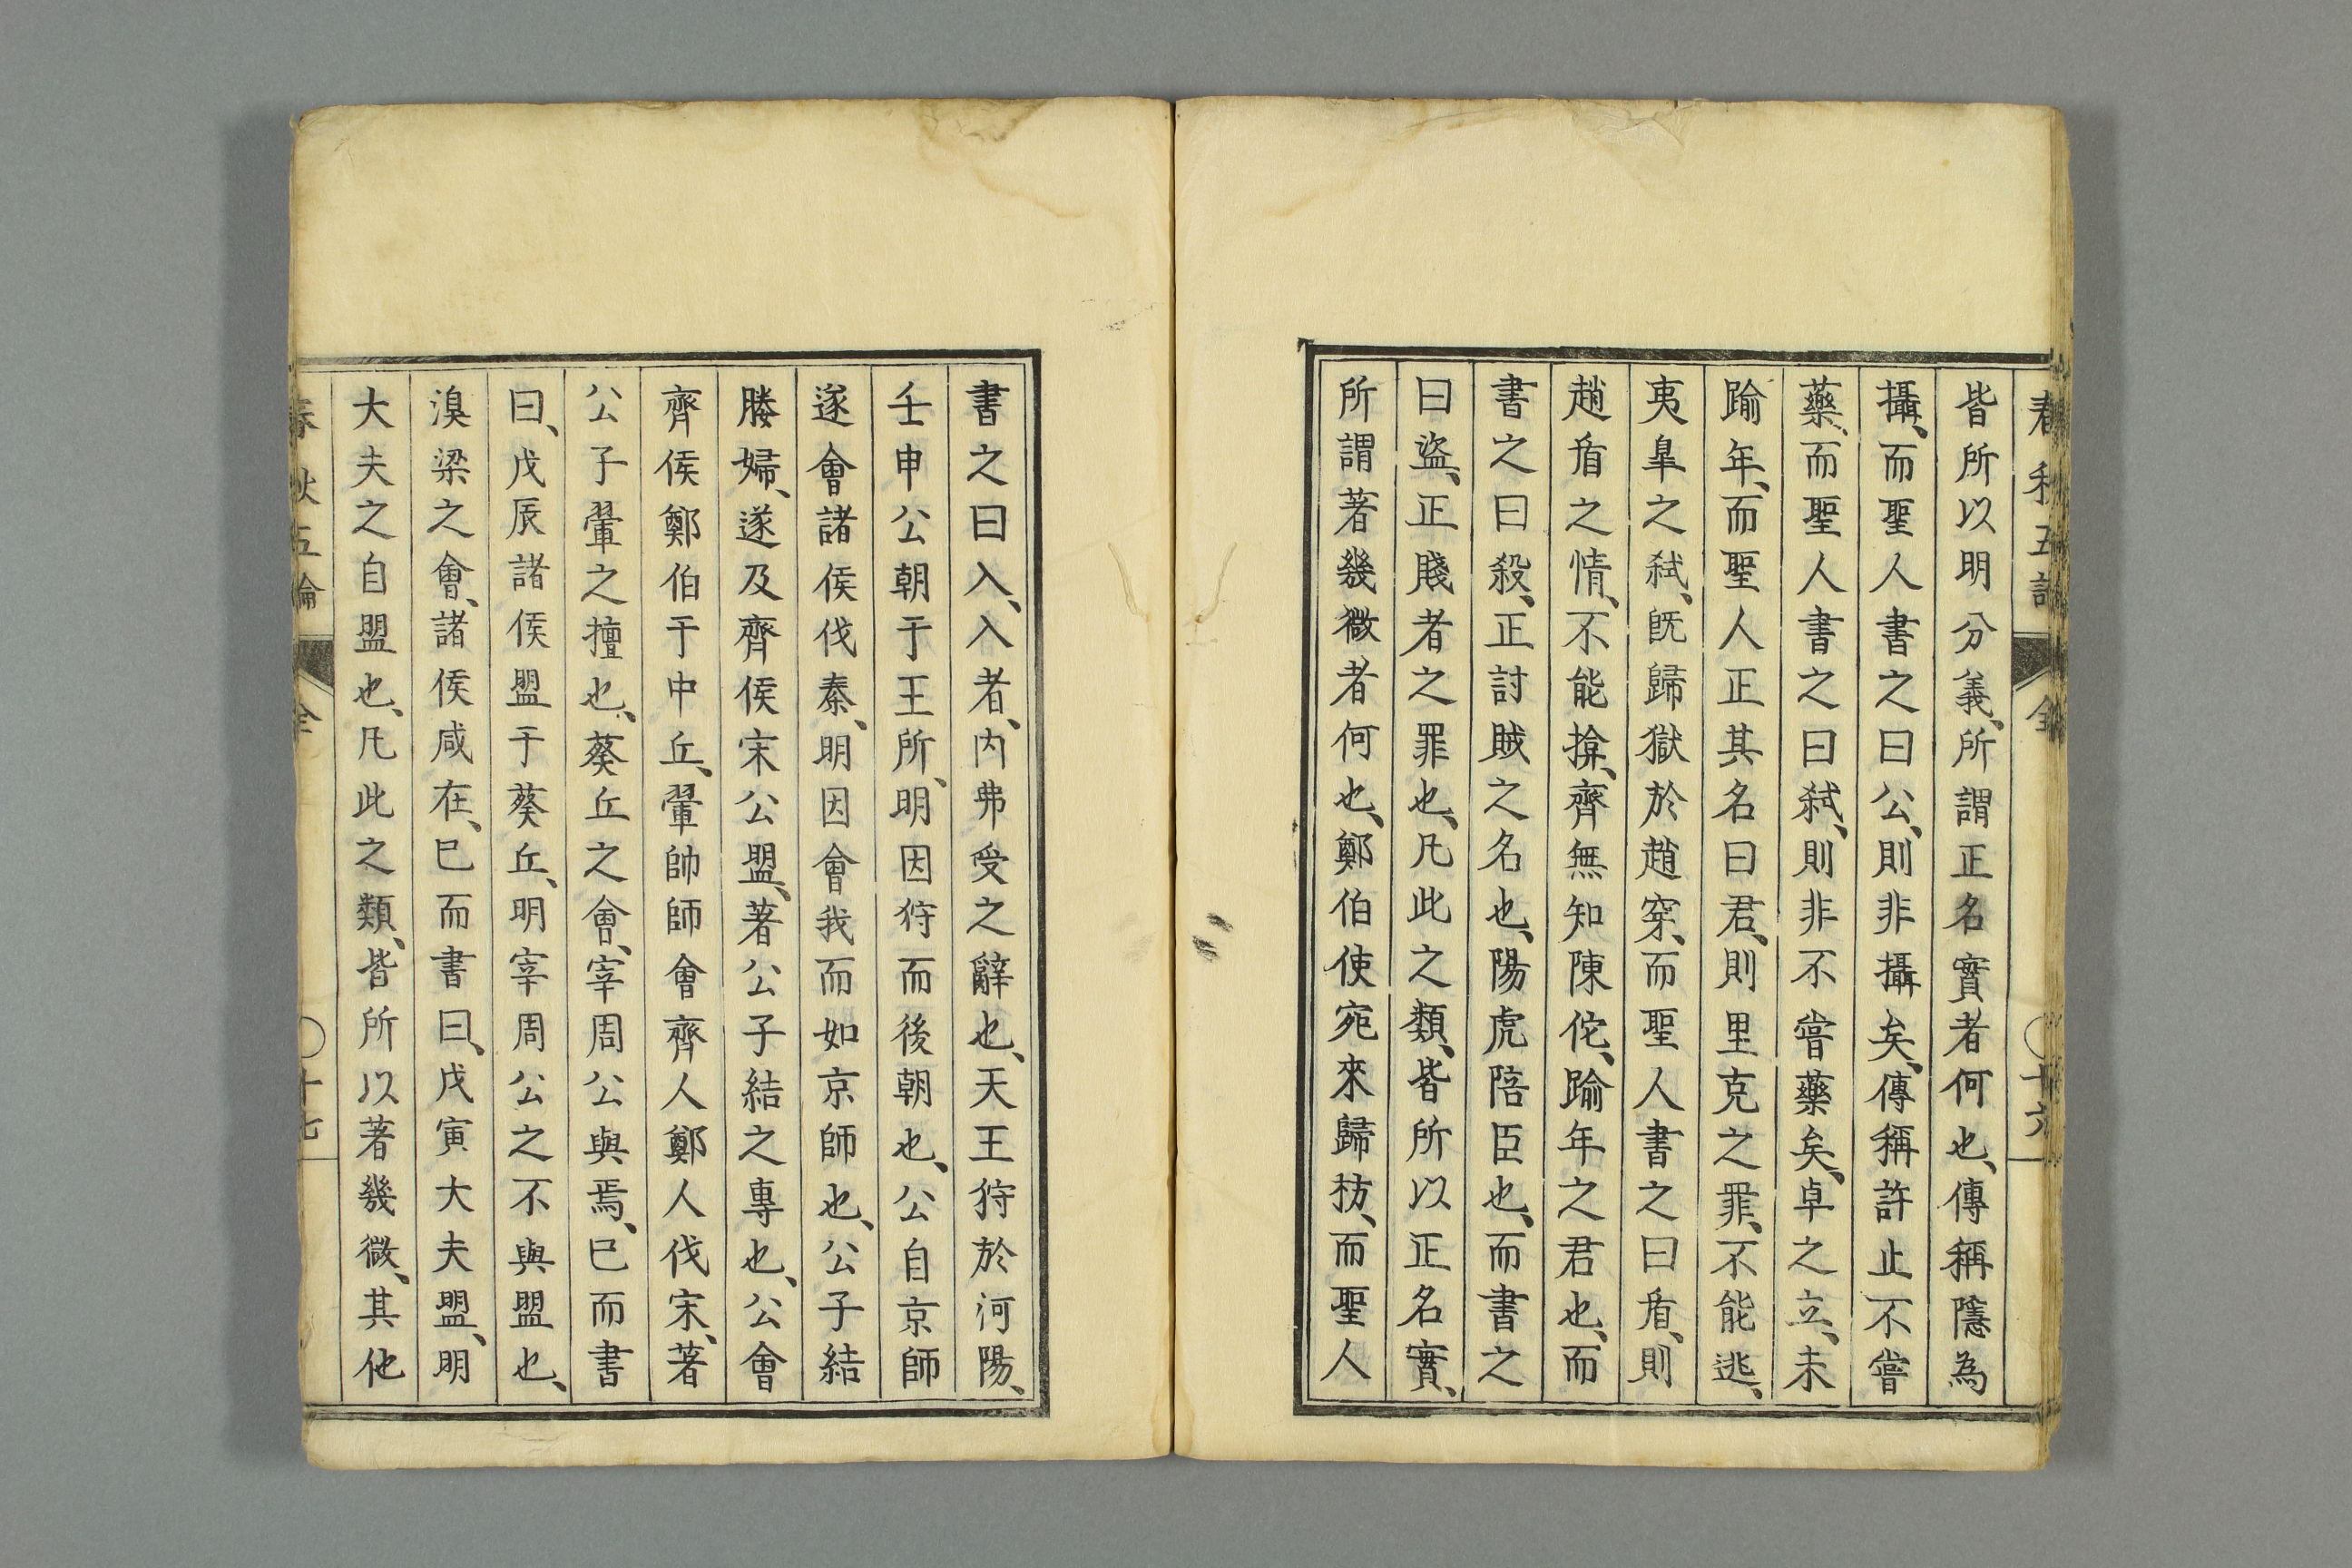 春秋五論 全 ○十六
皆所以明分義、所謂正名實者何也、傳稱隱為
攝、而聖人書之曰公、則非攝矣、傳稱許止不嘗
藥、而聖人書之曰弒、則非不嘗藥矣、卓之立、未
踰年、而聖人正其名曰君、則里克之罪、不能逃、
夷皐之弒、既歸獄於趙穿、而聖人書之曰盾、則
趙盾之情、不能揜、齊無知陳佗、踰年之君也、而
書之曰殺、正討賊之名也、陽虎陪臣也、而書之
曰盜、正賤者之罪也、凡此之類、皆所以正名實、
所謂著幾微者何也、鄭伯使宛來歸枋、而聖人
書之曰入、入者、內弗受之辭也、天王狩於河陽、
壬申公朝于王所、明因狩而後朝也、公自京師
遂會諸侯伐秦、明因會我而如京師也、公子結
媵婦、遂及齊侯宋公盟、著公子結之專也、公會
齊侯鄭伯于中丘、翬帥師會齊人鄭人伐宋、著
公子翬之擅也、葵丘之會、宰周公與焉、已而書
曰、戊辰諸侯盟于葵丘、明宰周公之不與盟也、
湨梁之會、諸侯咸在、已而書曰、戊寅大夫盟、明
大夫之自盟也、凡此之類、皆所以著幾微、其他
春秋五論 全 ○十七